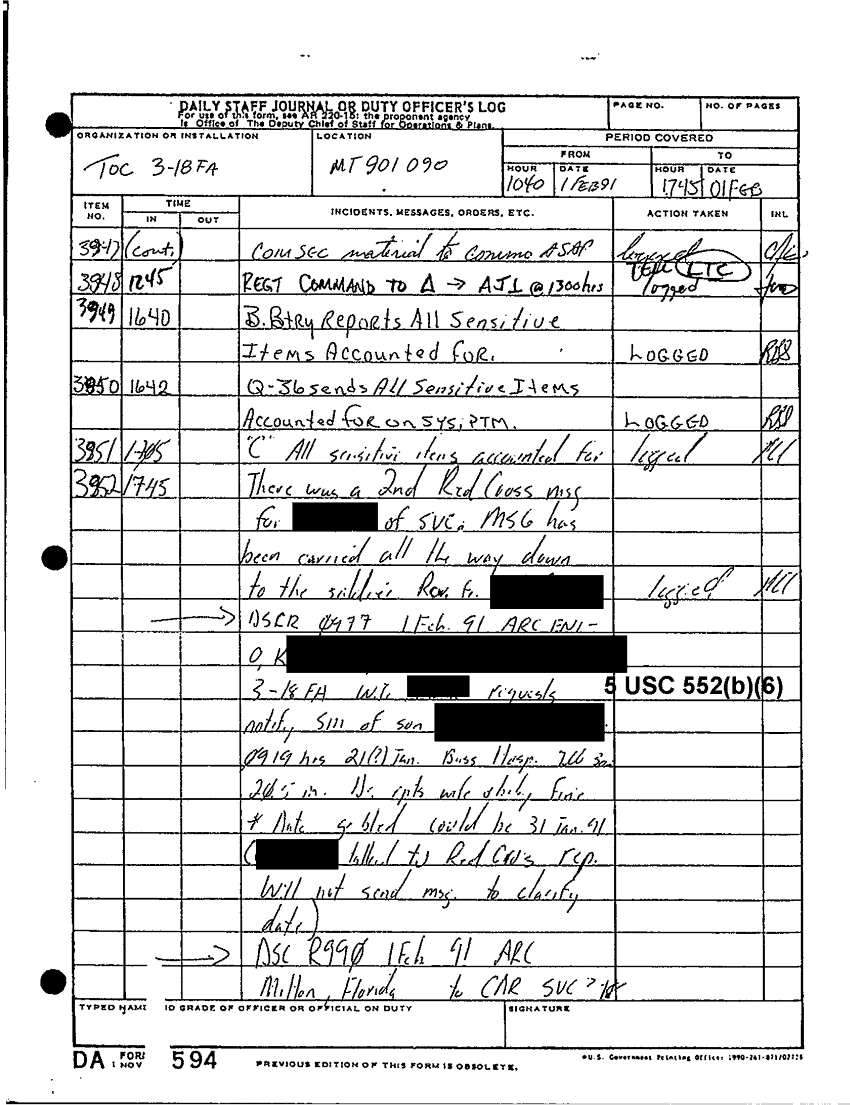 DAILY STAFF JOURNAL OR DUTY OFFICER'S LOG
For use of this form, see AR 220-15; the proponent agency
is Office of The Deputy Chief of Staff for Operations & Plans.
PAGE NO. NO. OF PAGES
ORGANIZATION OR INSTALLATION LOCATION PERIOD COVERED
FROM TO
TOC 3-18FA MT 901 090 HOUR DATE HOUR DATE
1040 1 FEB 91 1745 01 FEB
ITEM NO. TIME INCIDENTS, MESSAGES, ORDERS, ETC. ACTION TAKEN INL
IN OUT
3947 (cont.) COMSEC material to commo ASAP logged
3948 1245 REGT COMMAND TO Δ → AJ1 @ 1300hrs LTC logged
3949 1640 B. Btry Reports All Sensitive
Items Accounted for. LOGGED RSS
3950 1642 Q-36 sends All Sensitive Items
Accounted for on SYS; PTM. LOGGED
3951 1705 "C" All sensitive items accounted for logged
3952 1745 There was a 2nd Red Cross msg
for of SVC. MSG has
been carried all the way down
to the soldier. logged
→ DSCR 0977 1 Feb. 91 ARC ENI-
O, K
3-18 FA requests
5 USC 552(b)(6)
notify SM of son
0919 hrs 21(?) Jan. Hosp.
20.5 in.
* Date could be 31 Jan. 91
( talked to Red Cross rep.
Will not send msg. to clarify
date)
→ DSC R990 1 Feb 91 ARC
Milton, Florida to SVC
TYPED NAME GRADE OF OFFICER OR OFFICIAL ON DUTY SIGNATURE
DA FORM 1 NOV 594 PREVIOUS EDITION OF THIS FORM IS OBSOLETE. *U.S. Government Printing Office: 1990-261-871/02728